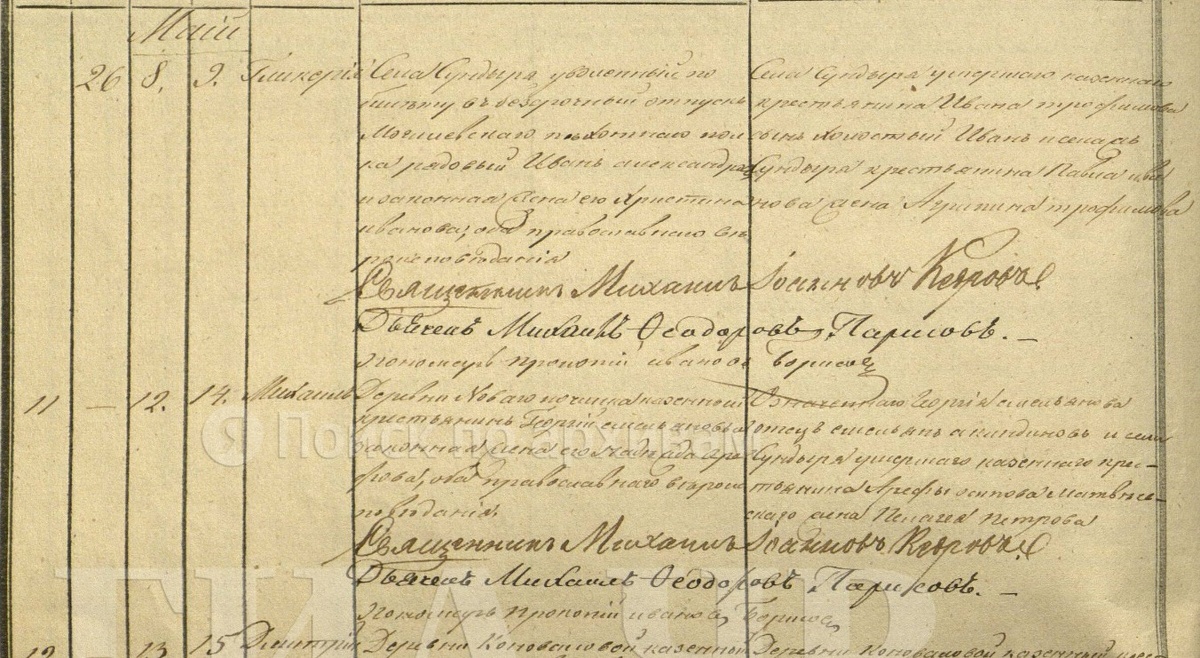 Маій
26 8. 9. Гликерія
Села Сундыря уволенный по
билету въ безсрочный отпускъ
Могилевскаго пѣхотнаго пол
ка рядовый Иванъ александров
и законная жена его Христина
иванова, оба православнаго вѣ
роисповѣданія
Села Сундыря умершаго казеннаго
крестьянина Ивана трофимова
сынъ холостый Иванъ и села
Сундыря крестьянина Павла ива
нова жена Агрипина трофимова
Священникъ Михаилъ Іоанновъ Кедровъ
Дьячекъ Михаилъ Ѳеодоровъ Парисовъ. —
пономарь Прокопій ивановъ Борисов
11 — 12. 14. Михаилъ
Деревни Новаго починка казенный
крестьянинъ Георгій емельяновъ и
законная жена его
фова, оба православнаго вѣроис
повѣданія.
Означеннаго Георгія емельянова
отецъ емельянъ акиндиновъ и села
Сундыря умершаго казеннаго крес—
тьянина Арефы осипова Матвѣев
скаго жена Пелагея Петрова
Священникъ Михаилъ Іоанновъ Кедровъ
Дьячекъ Михаилъ Ѳеодоровъ Парисовъ. —
Пономарь Прокопій ивановъ Борисов
12 13 15 Дмитрій
Деревни Коноваловой казенный
Деревни Коноваловой казенный крес
Я Поиск по архивам
ГИА ЧР